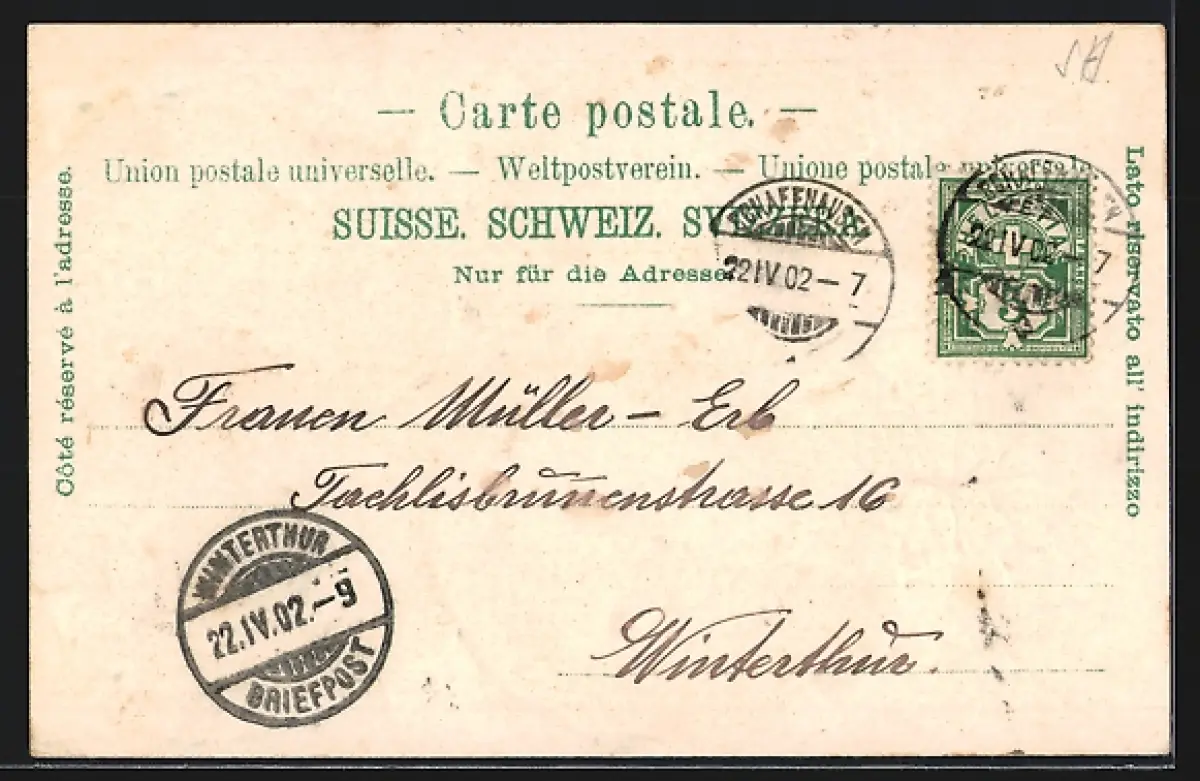 — Carte postale. —
Union postale universelle. — Weltpostverein. — Unione postale universale.
SUISSE. SCHWEIZ. SVIZZERA
Nur für die Adresse.
Côté réservé à l'adresse.
Lato riservato all' indirizzo
SCHAFFHAUSEN
22 IV 02 – 7
HELVETIA
22 IV 02 – 7
5
Frauen Müller – Erb
Tachlisbrunnenstrasse 16
Winterthur.
WINTERTHUR
22.IV.02.–9
BRIEFPOST